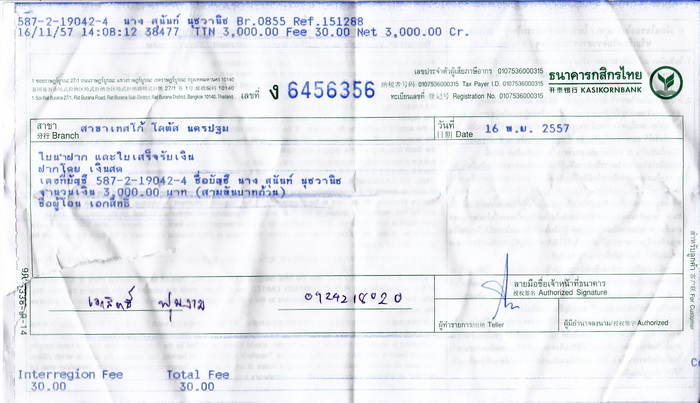 587-2-19042-4 นาง สุนันท์ นุชวานิช Br.0855 Ref.151288
16/11/57 14:08:12 38477 TTN 3,000.00 Fee 30.00 Net 3,000.00 Cr.
เลขประจำตัวผู้เสียภาษีอากร 0107536000315
纳税者号码 0107536000315 Tax Payer I.D. 0107536000315
ทะเบียนเลขที่ 登记号 Registration No. 0107536000315
ธนาคารกสิกรไทย
开泰银行 KASIKORNBANK
1 ซอยราษฎร์บูรณะ 27/1 ถนนราษฎร์บูรณะ แขวงราษฎร์บูรณะ เขตราษฎร์บูรณะ กรุงเทพมหานคร 10140
1 Soi Rat Burana 27/1, Rat Burana Road, Rat Burana Sub-District, Rat Burana District, Bangkok 10140, Thailand
เลขที่ ง 6456356
สาขา
分行 Branch
สาขาเทสโก้ โลตัส นครปฐม
วันที่
日期 Date
16 พ.ย. 2557
ใบนำฝาก และใบเสร็จรับเงิน
ฝากโดย เงินสด
เลขที่บัญชี 587-2-19042-4 ชื่อบัญชี นาง สุนันท์ นุชวานิช
จำนวนเงิน 3,000.00 บาท (สามพันบาทถ้วน)
ชื่อผู้โอน เอกสิทธิ์
สำหรับลูกค้า 客户联 For Customer
เอกสิทธิ์ พุ่มงาม
0924218020
ลายมือชื่อเจ้าหน้าที่ธนาคาร
授权签名 Authorized Signature
ผู้ทำรายการ/出纳 Teller
ผู้มีอำนาจลงนาม/授权签字 Authorized
Interregion Fee Total Fee
30.00 30.00